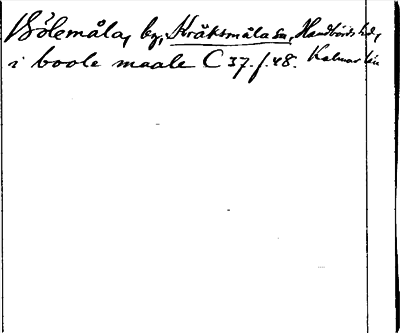 Bölemåla, by, Kråksmåla sn, Handbörds hd, Kalmar län
i boole maale C 37. f. 48.